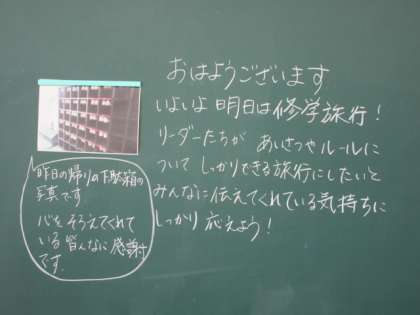 おはようございます
いよいよ明日は修学旅行！
リーダーたちが あいさつや ルールに
ついて しっかりできる旅行にしたいと
みんなに伝えてくれている気持ちに
しっかり 応えよう！
昨日の帰りの下駄箱の
写真です
心をそろえてくれて
いる皆んなに感謝
です.